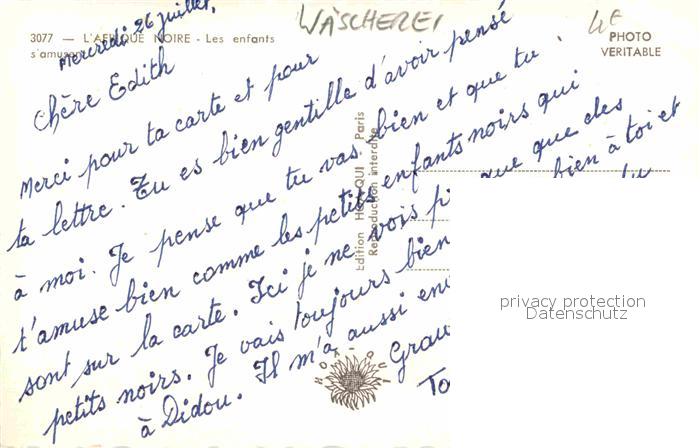 WÄSCHEREI
4E
3077 — L'AFRIQUE NOIRE - Les enfants
s'amusent
PHOTO
VERITABLE
Mercredi 26 juillet,
Chère Edith
Merci pour ta carte et pour
ta lettre. Tu es bien gentille d'avoir pensé
à moi. Je pense que tu vas bien et que tu
t'amuse bien comme les petits enfants noirs qui
sont sur la carte. Ici je ne vois que que des
petits noirs. Je vais toujours bien bien à toi et
à Didou. Il m'a aussi
Edition HOA-QUI - Paris
Reproduction interdite
HOA-QUI
privacy protection
Datenschutz